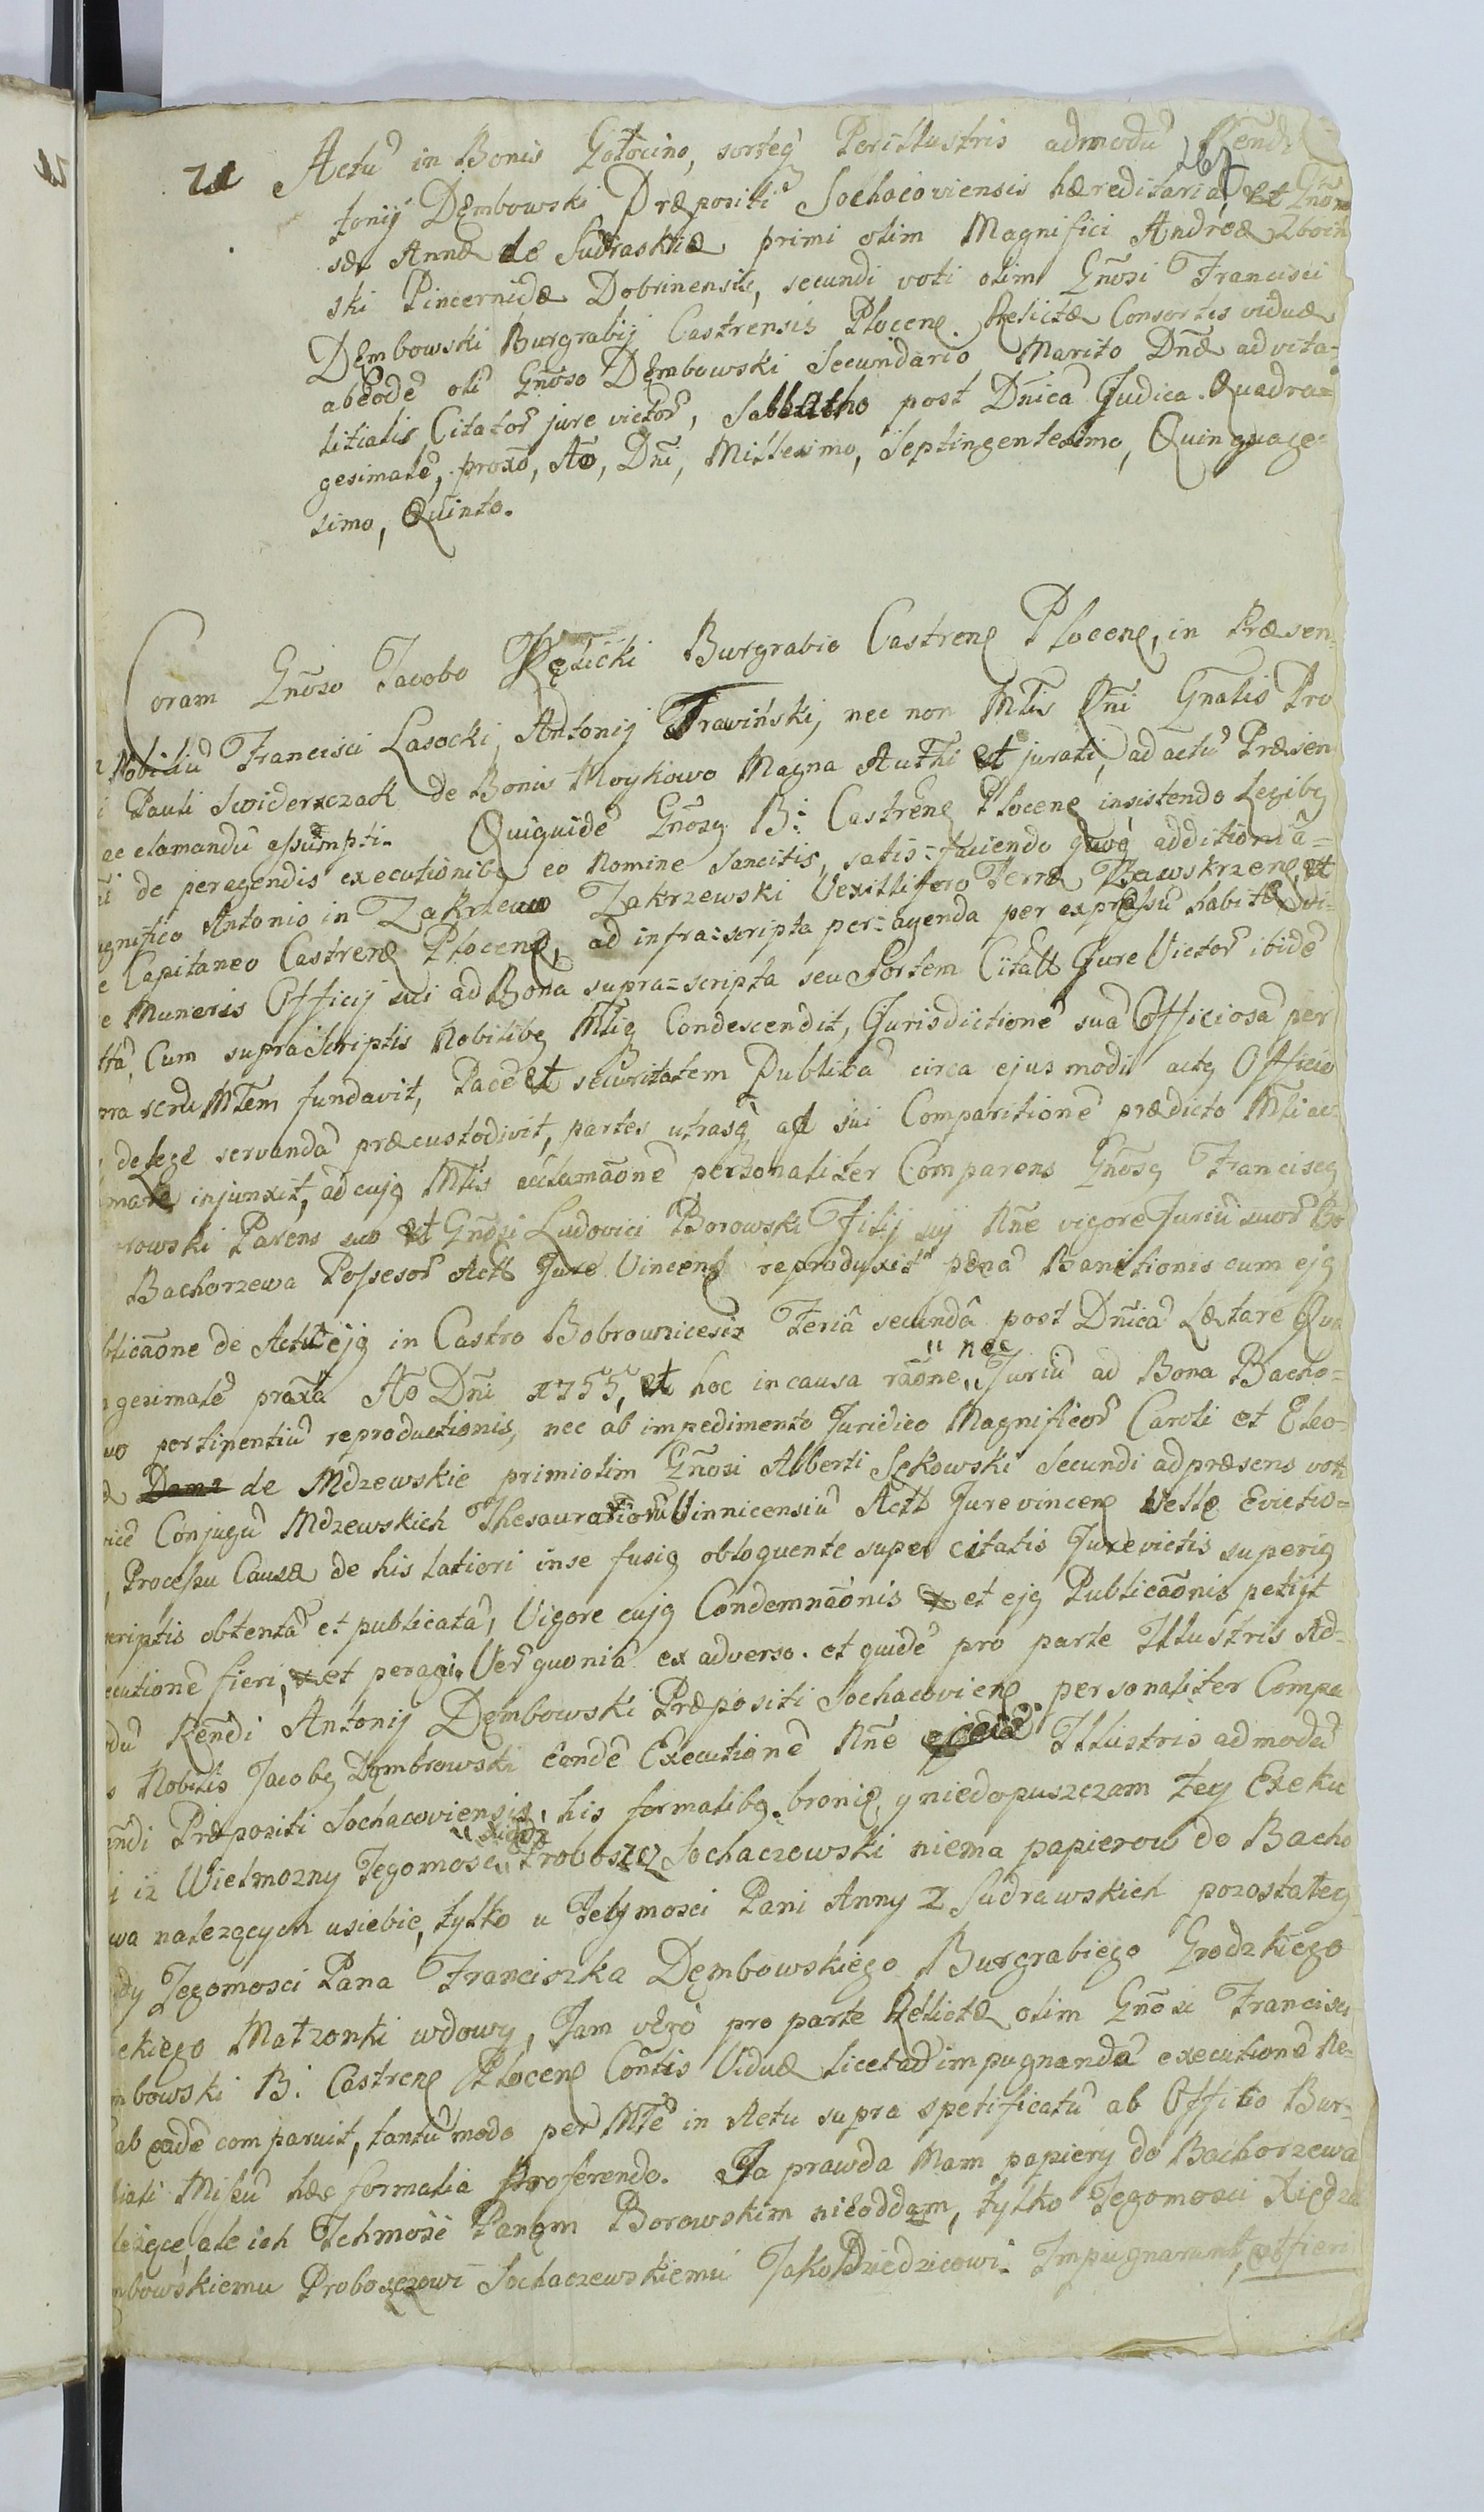 21 Actũ in Bonis Gołocino, sorteq Perillustris admodũ Rend
267
tonij Dembowski Præpositi Sochacoviensis hæreditaria, et Gnõ
sæ Annæ de Sudraskiæ primi olim Magnifici Andreæ Zboin
ski Pincernidæ Dobrinensis, secundi voti olim Gñosi Francisci
Dembowski Burgrabij Castrensis Plocenẽ Relictæ Consortis viduæ
abeodẽ oli Gñoso Dembowski Secundario Marito Dñæ advita-
litialis Citator jure victor, Sabbatho post Dñica Judica Quadra=
gesimalẽ, proxõ, Aõ, Dñi, Millesimo, Septingentesimo, Quinquage-
simo, Quinto.
Coram Gñoso Jacobo Kęsicki Burgrabio Castrenẽ Plocenẽ, in Præsen-
Nobiliũ Francisci Lasocki, Antonij Trawiński, nec non Mlis Rñi Gñalis Pro
i Pauli Swiderszczak de Bonis Moykowo Magna Authi et jurati, ad actũ Præsen
ac clamandũ assumpti. Quiquidẽ Gñosq B: Castrenẽ Plocenẽ insistendo Legibq
ni de peragendis executionibq eo Nomine Sancitis, satis=faciendo quoq additionã=
agnifico Antonio in Zakrzewo Zakrzewski Vexillifero Terræ Zawskrzenẽ, et
e Capitaneo Castrenẽ Plocenẽ, ad infra=scripta per=agenda per expressũ habitæ, vi-
e Muneris Officij sui ad Bona supra=scripta seu Sortem Citatt Jure Victor ibidẽ
ttã, Cum supra Scriptis Nobilibq Mliq Condescendit, Jurisdictionẽ suã Officiosã per
pra scrũ Mlem fundavit, Pacẽ et securitatem Publicã circa ejus modi actq Officio
de lege servandã præcustodivit, partes utrasq ad sui Comparitionẽ prædicto Mli ac-
mare injunxit, ad cujq Mlis acclamãonẽ personaliter Comparens Gñosq Franciscq
orowski Parens suo et Gñosi Ludovici Borowski Filij sui Nñe vigore Juriũ suor Bo
Bachorzewa Possesor Actt Jure Vincenẽ reproduxit pœnã Banitionis cum ejq
blicãone de Actu ejq in Castro Bobrownicesis Feriâ secundâ post Dñicã Lætare Qua
agesimalẽ proxã Aõ Dñi 1755, et hoc in causa rãone " nec " Juriũ ad Bona Bacho=
wo pertinentiũ reproductionis, nec ab impedimento Juridico Magnificor Caroli et Eleo-
æ Dama de Mdzewskie primi olim Gñosi Alberti Sękowski Secundi ad præsens voti
vicẽ Conjugũ Mdzewskich Thesauratior Vinnicensiũ Actt Jure vincenẽ Velle Evictio=
, Processu Causæ de his latiori in se fusiq obloquente super citatis Jurevictis superiq
scriptis obtentã et publicatã, Vigore cujq Condemnãonis et ejq Publicãonis petijt
ecutionẽ fieri, et peragi, Ver quoniã ex adverso. et quidẽ pro parte Illustris Ad-
odũ Rendi Antonij Dembowski Præpositi Sochacovienẽ personaliter Compa
s Nobilis Jacobq Dąmbrowski eandẽ Executionẽ Nñe ejusdẽ Illustris admodũ
ndi Præpositi Sochacoviensis, his formalibq. bronię, y niedopuszczam tey Exeku
i iz Wielmozny Jegomosc " Xiądz " Proboszcz Sochaczewski niema papierow do Bacho
wa nalezących usiebie, tylko u Jeiymosci Pani Anny z Sudrawskich pozostałey
dy Jegomosci Pana Franciszka Dębowskiego Burgrabiego Grodzkiego
ckiego Małzonki wdowy, Jam vero pro parte Relictæ olim Gñosi Francisci
mbowski B: Castrenẽ Plocenẽ Contis Viduæ licet ad impugnandã executionẽ Ne-
ab eadẽ comparuit, tantũ modo per Mlẽ in Actu supra spetificatũ ab Offitio Bur-
iali Missũ hæc formalia Proferendo. Ja prawda Mam papiery do Bachorzewa
lezące, ale ich Ichmość Panom Borowskim nieoddam, tylko Jegomosci Xiędzu
mbowskiemu Proboszczowi Sochaczewskiemu Jako Dziedzicowi. Impugnarunt, et fieri